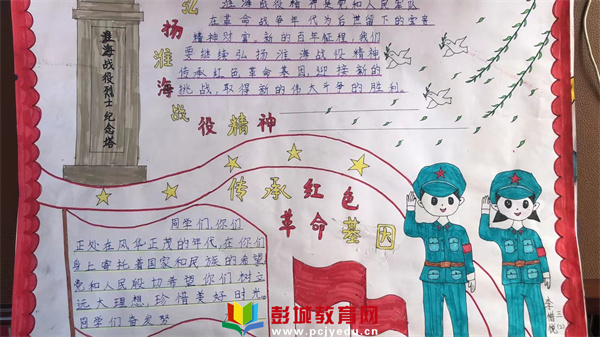 弘扬淮海战役精神
淮海战役烈士纪念塔
淮海战役精神是党和人民军队
在革命战争年代为后世留下的宝贵
精神财富,新的百年征程,我们
要继续弘扬淮海战役精神
传承红色革命基因,迎接新的
挑战,取得新的伟大斗争的胜利。
传承红色
革命基因
同学们,你们
正处在风华正茂的年代,在你们
身上寄托着国家和民族的希望
党和人民殷切希望你们树立
远大理想,珍惜美好时光。
同学们奋发努
三(2)
李惜悦
彭城教育网
www.pcjyedu.cn